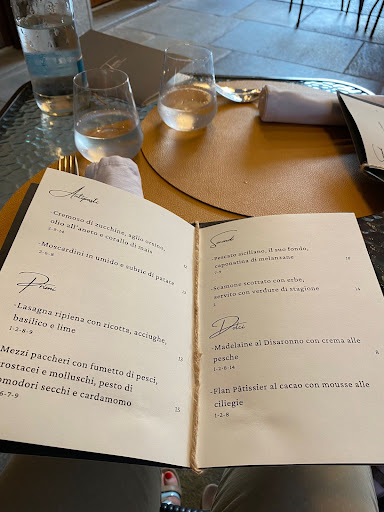 Antipasti
·Cremoso di zucchine, aglio orsino,
olio all'aneto e corallo di mais
·Moscardini in umido e subric di patate
Primi
·Lasagna ripiena con ricotta, acciughe,
basilico e lime
1-2-8-9
·Mezzi paccheri con fumetto di pesci,
crostacei e molluschi, pesto di
pomodori secchi e cardamomo
6-7-9
15
Secondi
·Pescato siciliano, il suo fondo,
caponatina di melanzane
·Scamone scottato con erbe,
servito con verdure di stagione
14
Dolci
·Madelaine al Disaronno con crema alle
pesche
1-2-6-14
6
·Flan Pâtissier al cacao con mousse alle
ciliegie
1-2-8